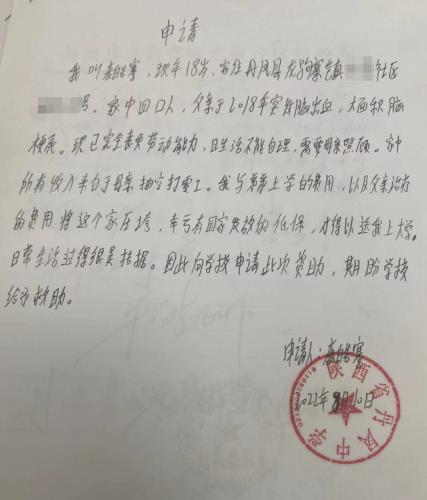 申请
我叫 ，现年18岁，家住丹凤县龙驹寨镇 社区
号。家中四口人，父亲于2018年突发脑出血，大面积脑
梗死。现已完全丧失劳动能力，且生活不能自理，需要母亲照顾。家中
所有收入来自于母亲抽空打零工。我与弟弟上学的费用，以及父亲治疗
的费用将这个家压垮，幸亏有国家发放的低保，才得以送我上大学。
日常生活过得很是拮据。因此向学校申请此次资助，期盼学校
给予救助。
申请人：
2022年8月10日
陕西省丹凤中学